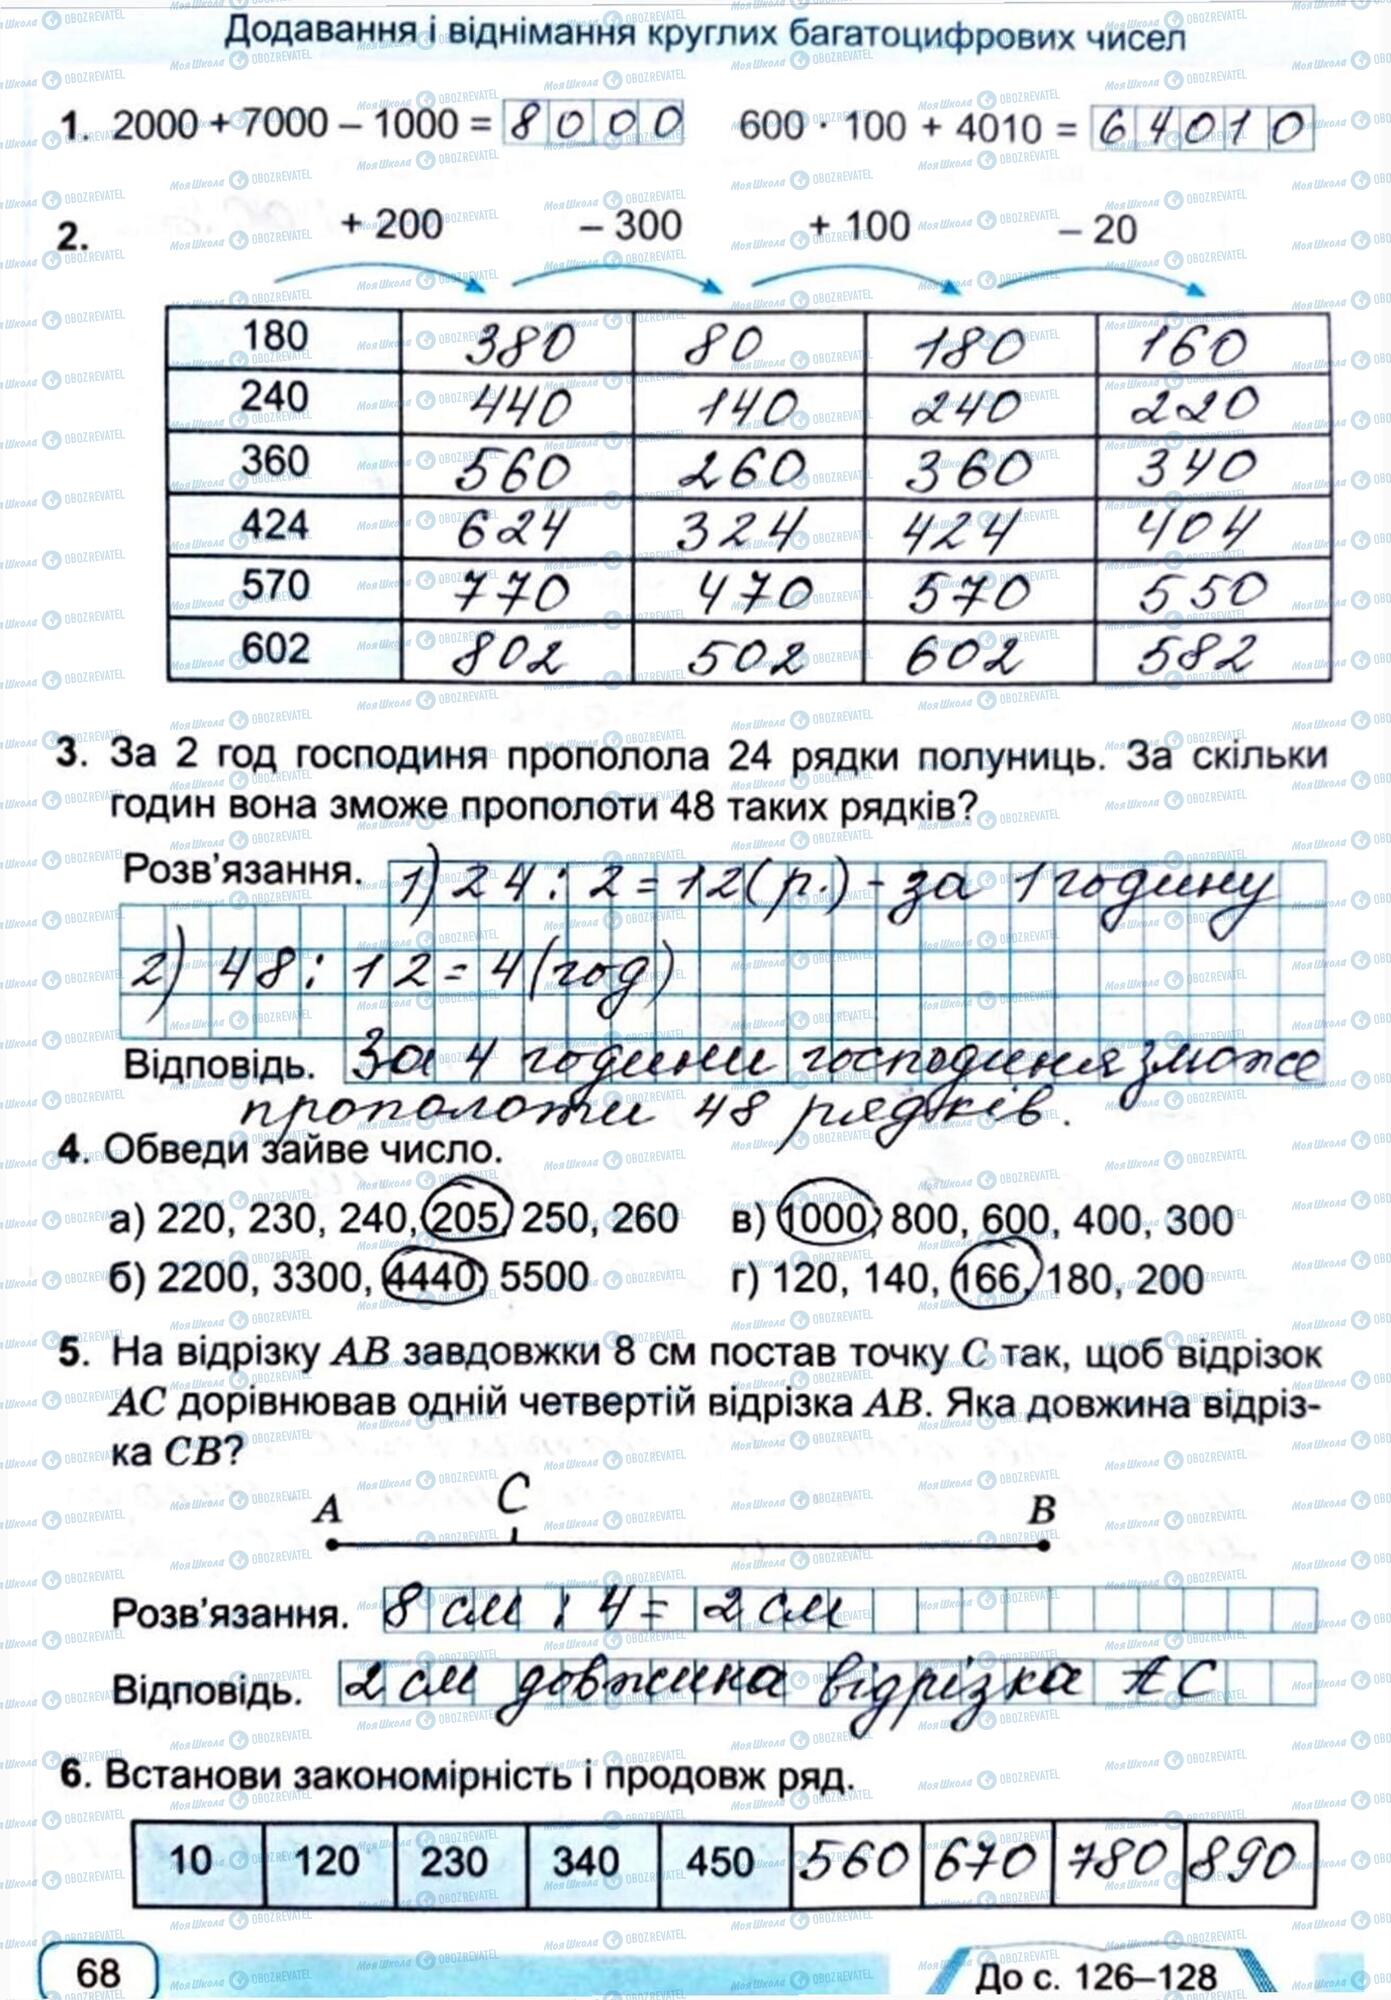 Додавання і віднімання круглих багатоцифрових чисел
1. 2000 + 7000 – 1000 = 8000 600 · 100 + 4010 = 64010
2. + 200 – 300 + 100 – 20
180 380 80 180 160
240 440 140 240 220
360 560 260 360 340
424 624 324 424 404
570 770 470 570 550
602 802 502 602 582
3. За 2 год господиня прополола 24 рядки полуниць. За скільки
годин вона зможе прополоти 48 таких рядків?
Розв'язання. 1) 24 : 2 = 12 (р.) - за 1 годину
2) 48 : 12 = 4 (год)
Відповідь. За 4 години господиня зможе
прополоти 48 рядків.
4. Обведи зайве число.
а) 220, 230, 240, 205, 250, 260 в) 1000, 800, 600, 400, 300
б) 2200, 3300, 4440, 5500 г) 120, 140, 166, 180, 200
5. На відрізку АВ завдовжки 8 см постав точку С так, щоб відрізок
АС дорівнював одній четвертій відрізка АВ. Яка довжина відріз-
ка СВ?
А С В
Розв'язання. 8 см : 4 = 2 см
Відповідь. 2 см довжина відрізка АС
6. Встанови закономірність і продовж ряд.
10 120 230 340 450 560 670 780 890
68 До с. 126–128